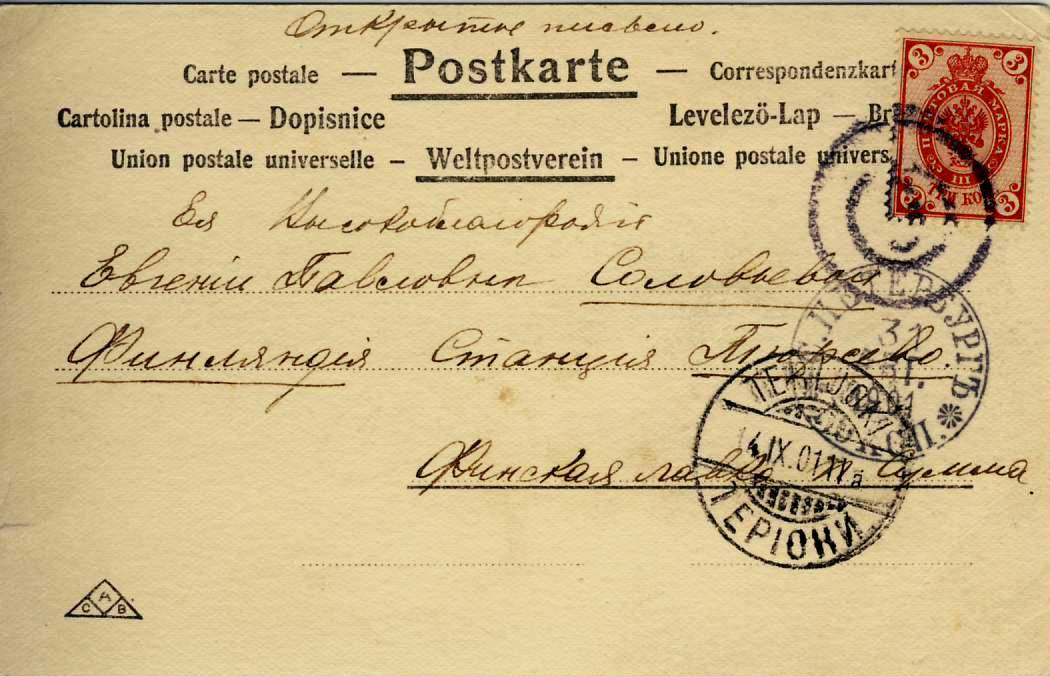 Открытое письмо.
Carte postale — Postkarte — Correspondenzkart
Cartolina postale — Dopisnice Levelező-Lap — Br
Union postale universelle — Weltpostverein — Unione postale univers
3 3
ПОЧТОВАЯ МАРКА
III
3 ТРИ КОП 3
Ея Высокоблагородію
Евгеніи Павловнѣ Соловьевой
Финляндія Станція Тюрсево.
С.ПЕТЕРБУРГЪ
31
1901
TERIJOKI
14.IX.01
ТЕРІОКИ
Финская лавка
C A B